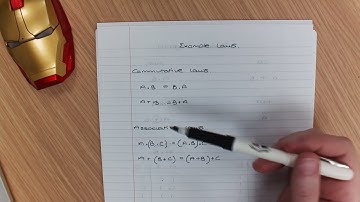 Example Laws.
Commutative Laws
A.B = B.A
A+B = B+A
Associative Laws
A.(B.C) = (A.B).C
A + (B+C) = (A+B)+C